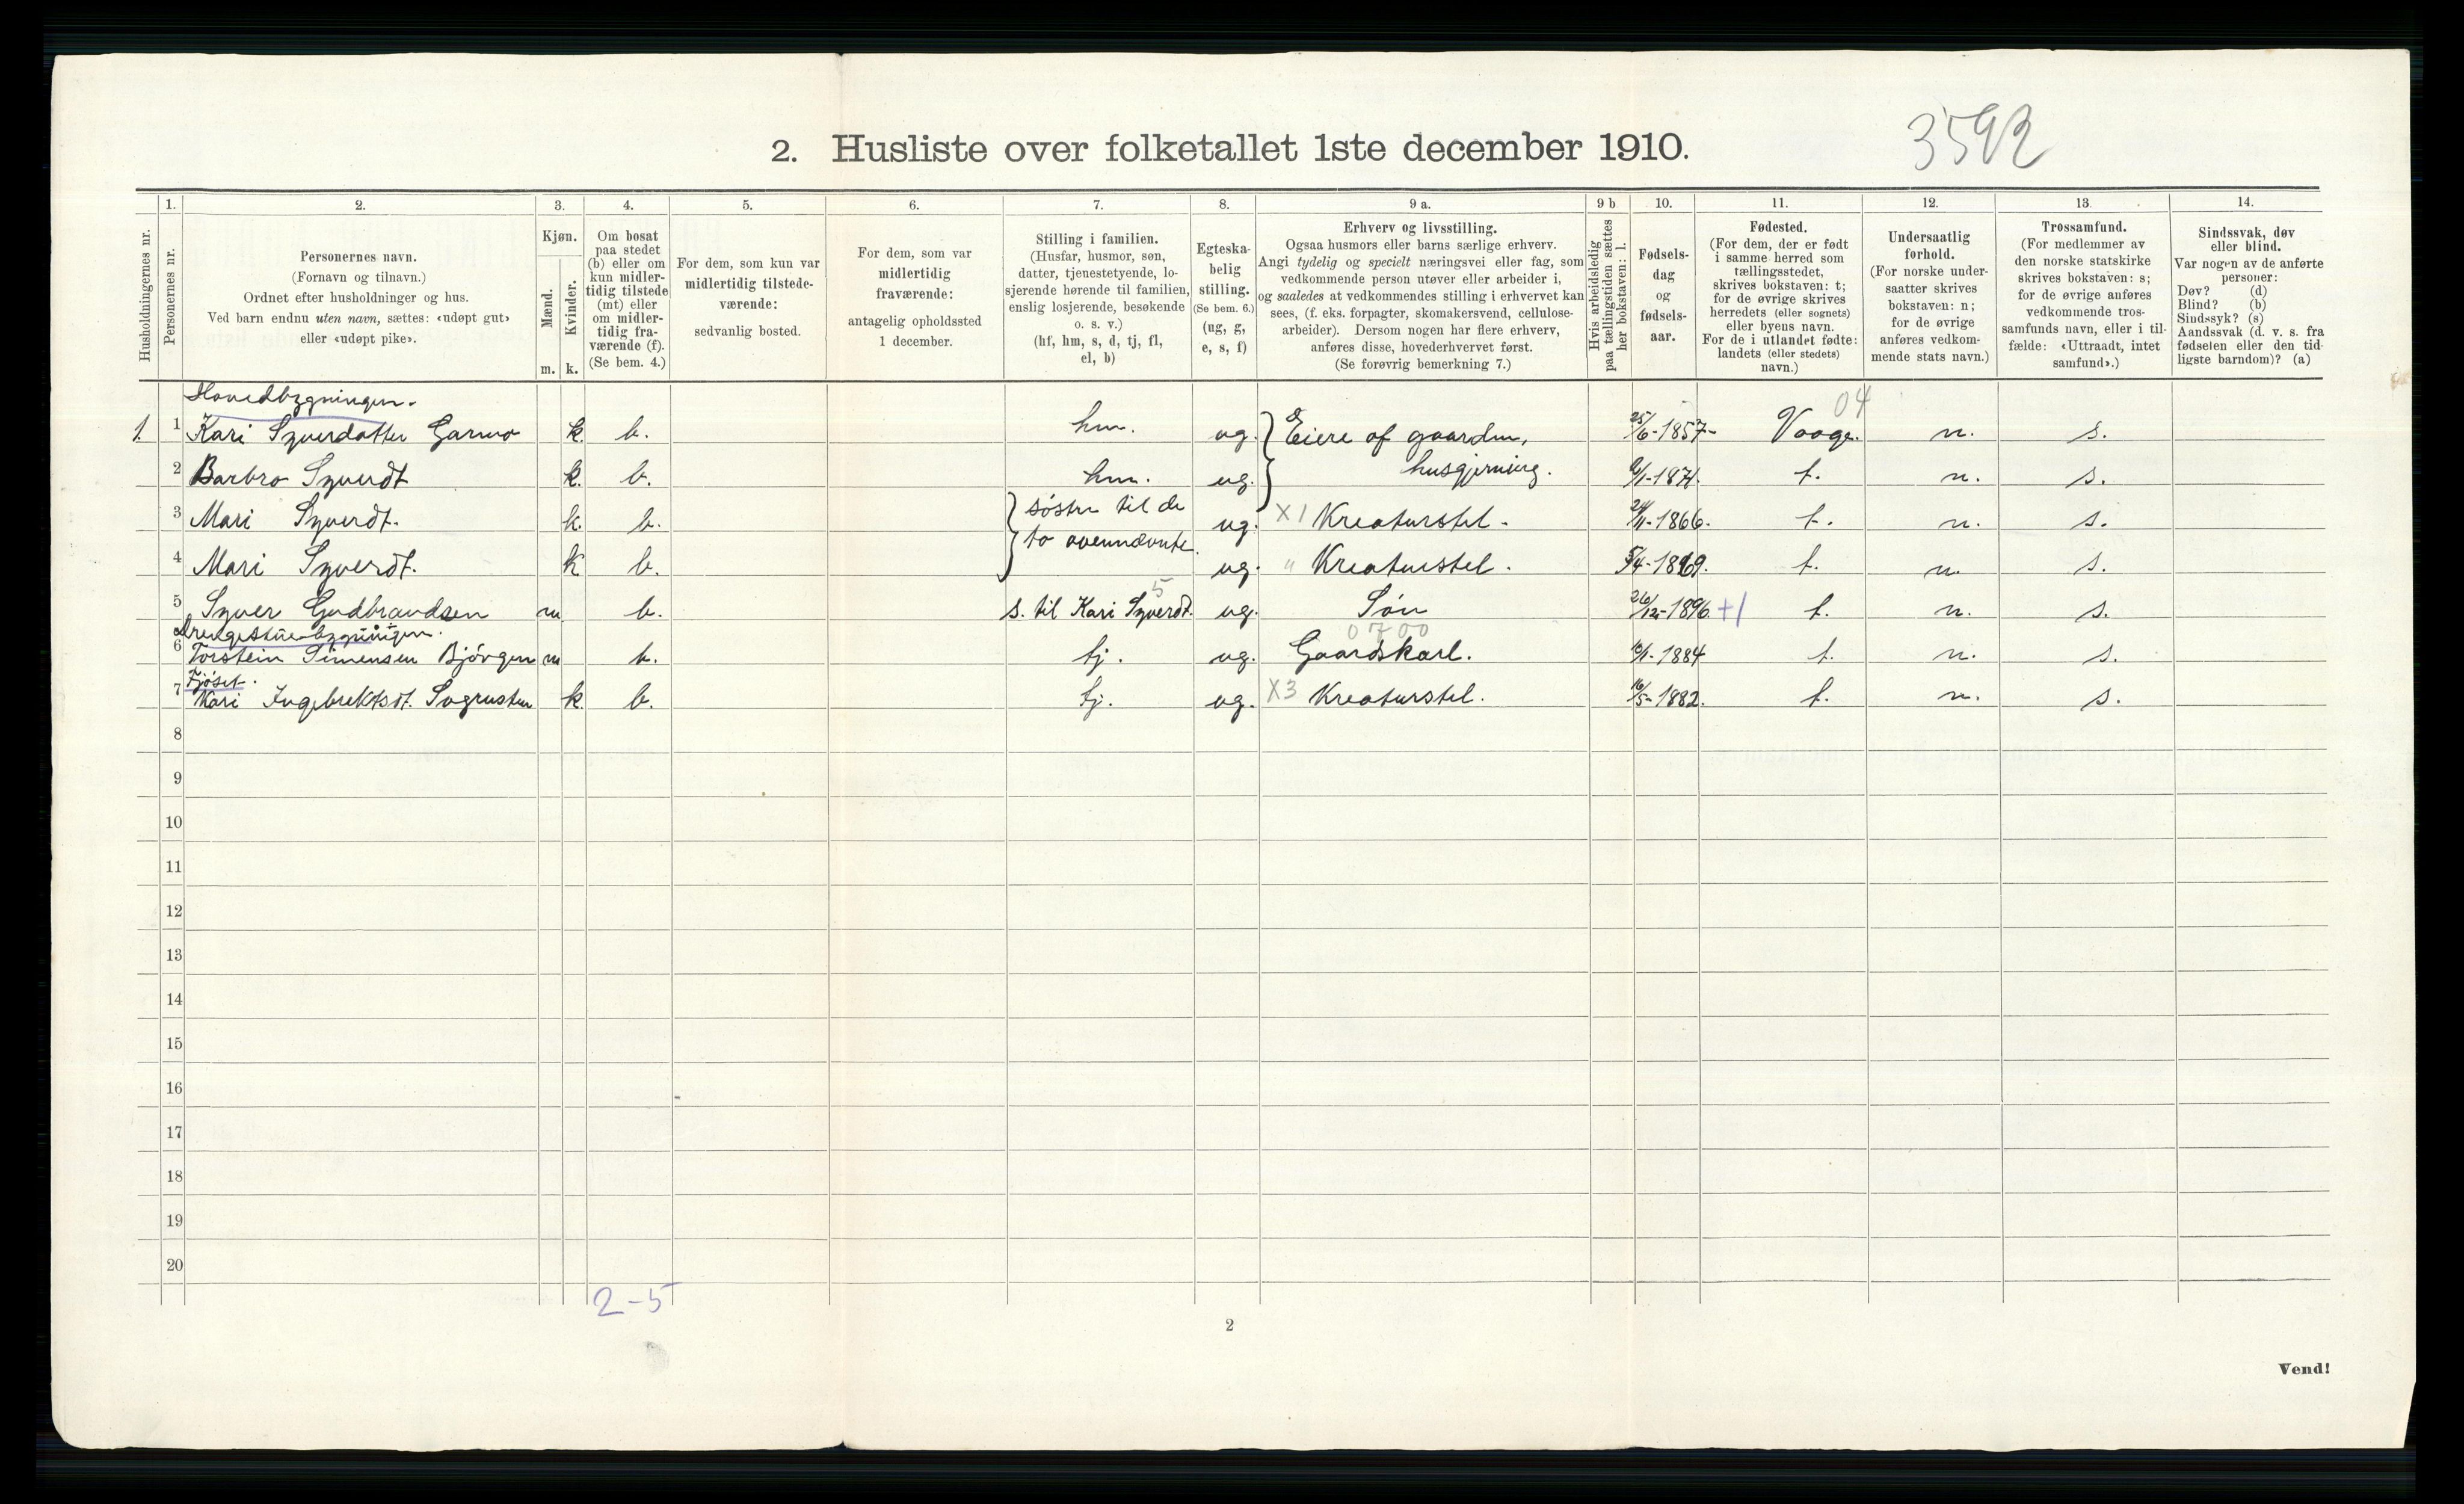 3592
2. Husliste over folketallet 1ste december 1910.
Husholdningernes nr.
1. Personernes nr.
2. Personernes navn. (Fornavn og tilnavn.) Ordnet efter husholdninger og hus. Ved barn endnu uten navn, sættes: «udøpt gut» eller «udøpt pike».
3. Kjøn. Mænd. m. Kvinder. k.
4. Om bosat paa stedet (b) eller om kun midlertidig tilstede (mt) eller om midlertidig fraværende (f). (Se bem. 4.)
5. For dem, som kun var midlertidig tilstedeværende: sedvanlig bosted.
6. For dem, som var midlertidig fraværende: antagelig opholdssted 1 december.
7. Stilling i familien. (Husfar, husmor, søn, datter, tjenestetyende, losjerende hørende til familien, enslig losjerende, besøkende o. s. v.) (hf, hm, s, d, tj, fl, el, b)
8. Egteskabelig stilling. (Se bem. 6.) (ug, g, e, s, f)
9 a. Erhverv og livsstilling. Ogsaa husmors eller barns særlige erhverv. Angi tydelig og specielt næringsvei eller fag, som vedkommende person utøver eller arbeider i, og saaledes at vedkommendes stilling i erhvervet kan sees, (f. eks. forpagter, skomakersvend, cellulosearbeider). Dersom nogen har flere erhverv, anføres disse, hovederhvervet først. (Se forøvrig bemerkning 7.)
9 b Hvis arbeidsledig paa tællingstiden sættes her bokstaven: l.
10. Fødselsdag og fødselsaar.
11. Fødested. (For dem, der er født i samme herred som tællingsstedet, skrives bokstaven: t; for de øvrige skrives herredets (eller sognets) eller byens navn. For de i utlandet fødte: landets (eller stedets) navn.)
12. Undersaatlig forhold. (For norske undersaatter skrives bokstaven: n; for de øvrige anføres vedkommende stats navn.)
13. Trossamfund. (For medlemmer av den norske statskirke skrives bokstaven: s; for de øvrige anføres vedkommende trossamfunds navn, eller i tilfælde: «Uttraadt, intet samfund».)
14. Sindssvak, døv eller blind. Var nogen av de anførte personer: Døv? (d) Blind? (b) Sindssyk? (s) Aandssvak (d. v. s. fra fødselen eller den tidligste barndom)? (a)
Hovedbygningen. 04
1. 1 Kari Syverdatter Garmo k. b. hm. ug. Eiere af gaarden, 25/6-1857- Vaage. n. s.
2 Barbro Syverdt k. b. hm. ug. husgjerning. 6/1-1871. t. n. s.
3 Mari Syverdt. k. b. søstre til de ug. X1 Kreaturstel. 24/11-1866. t. n. s.
4 Mari Syverdt. k b. to ovennævnte. ug. " Kreaturstel. 5/4-1869. t. n. s.
5 Syver Gudbrandsen m. b. s. til Kari Syverdt. 5 ug. Søn 26/12-1896. +1 t. n. s.
Drengestuebygningen. 0700
6 Torstein Simensen Bjørgen m b. tj. ug. Gaardskarl. 10/1-1884 t. n. s.
Fjøset.
7 Kari Ingebrektsdt. Sogrusten k. b. tj. ug. X3 Kreaturstel. 16/5-1882. t. n. s.
8
9
10
11
12
13
14
15
16
17
18
19
20
2-5
2
Vend!